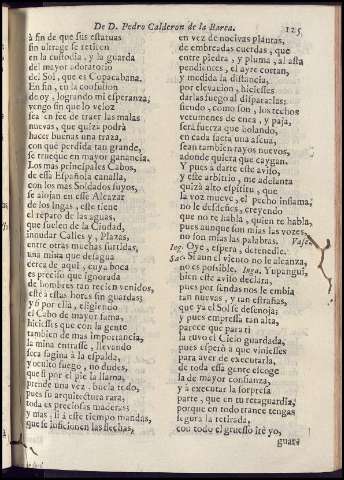 De D. Pedro Calderon de la Barca. 125
à fin de que sus estatuas
sin ultrage se retiren
en la custodia, y la guarda
del mayor adoratorio
del Sol, que es Copacabana.
En fin, en la confusion
de oy, logrando mi esperança,
vengo sin que lo veloz
sea en fee de traer las malas
nuevas, que quizà podrà
hacer buenas una traza,
con que perdida tan grande,
se trueque en mayor ganancia.
Los mas principales Cabos,
de essa Española canalla,
con los mas Soldados suyos,
se alojan en esse Alcazar
de los Ingas, este tiene
el reparo de las aguas,
que suelen de la Ciudad,
inundar Calles, y Plazas,
entre otras muchas surtidas,
una mina que desagua
cerca de aqui, cuya boca
es preciso que ignorada
de hombres tan recien venidos,
estè à estas horas sin guardas;
y si por ella, eligiendo
el Cabo de mayor fama,
hiciesses que con la gente
tambien de mas importancia,
la mina entrasse, llevando
seca fagina à la espalda,
y oculto fuego, no dudes,
que si por el pie la llama,
prende una vez, buela todo,
pues su arquitectura rara,
toda es preciosas maceras;
y mas, si à este tiempo mandas,
que se inficionen las flechas,
en vez de nocivas plantas,
de embreadas cuerdas, que
entre piedra, y pluma, al asta
pendientes, el ayre cortan,
y medida la distancia,
por elevacion, hiciesses
darlas fuego al dispararlas;
siendo, como son, los techos
vetumenes de enea, y paja,
serà fuerza que bolando,
en cada saeta una ascua,
sean tambien rayos nuevos,
adonde quiera que caygan.
Y pues à darte este aviso,
y este arbitrio, me adelanta
quizà alto espiritu, que
la voz mueve, el pecho inflama,
no le desdeñes, creyendo
que no te habla, quien te habla,
pues aunque son mias las vozes,
no son mias las palabras. Vase.
Ing. Oye, espera, detenedle.
Sac. Si aun el viento no le alcanza,
no es possible. Inga. Yupangui,
bien este aviso declara,
pues por sendas nos le embia
tan nuevas, y tan estrañas,
que ya el Sol se desenoja;
y pues empressa tan alta,
parece que para ti
la tuvo el Cielo guardada,
pues esperò à que viniesses
para aver de executarla,
de toda essa gente escoge
la de mayor confianza,
y à executar la sorpresa
parte, que en tu retaguardia,
porque en todo trance tengas
segura la retirada,
con todo el gruesso irè yo,
guar-